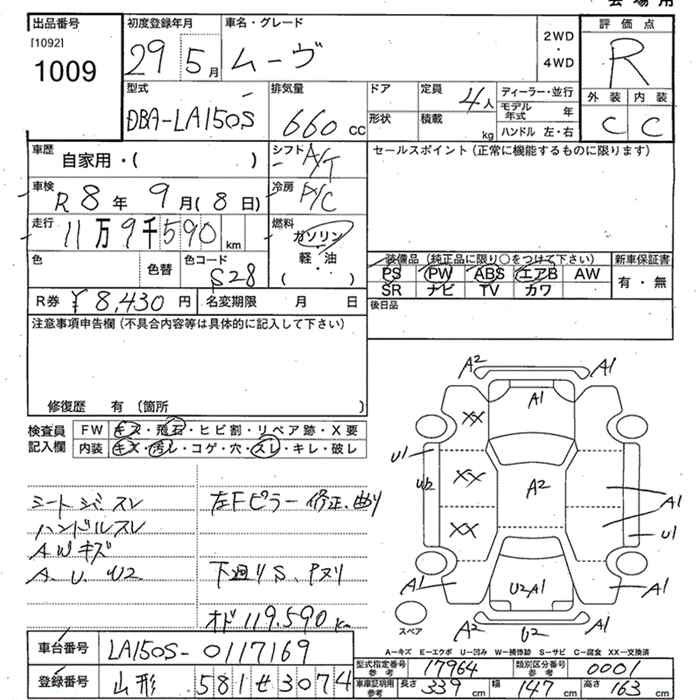 会場用
出品番号
[1092]
1009
初度登録年月
29 5月
車名・グレード
ムーヴ
2WD
・
4WD
評価点
R
外装 内装
C C
型式
DBA-LA150S
排気量
660 cc
ドア
形状
定員
4人
積載
kg
ディーラー・並行
モデル年式 年
ハンドル 左・右
車歴
自家用・( )
シフト
A/T
セールスポイント(正常に機能するものに限ります)
車検
R 8年 9月(8日)
冷房
A/C
走行
11万9千590 km
燃料
ガソリン
軽・油
( )
色
色替
色コード
S28
装備品(純正品に限り○をつけて下さい)
PS PW ABS エアB AW
SR ナビ TV カワ
新車保証書
有・無
R券 ¥8,430円
名変期限 月 日
後日品
注意事項申告欄(不具合内容等は具体的に記入して下さい)
修復歴 有 (箇所 )
検査員
記入欄
FW キズ・飛石・ヒビ割・リペア跡・X要
内装 キズ・汚レ・コゲ・穴・スレ・キレ・破レ
シートジミスレ
ハンドルスレ
AWキズ
A.U.W2
左Fピラー修正、曲り
下廻りS、Pヌリ
オド119.590km
A2 A1
A1
XX
U1
W2 XX A2
XX
A1
U1
A1 U2A1 A1
U2
スペア
A-キズ E-エクボ U-凹み W-補修跡 S-サビ C-腐食 XX-交換済
車台番号 LA150S-0117169
登録番号 山形 581せ3074
型式指定番号 参考 17964
類別区分番号 参考 0001
車庫証明用 参考 長さ 339cm 幅 147cm 高さ 163cm